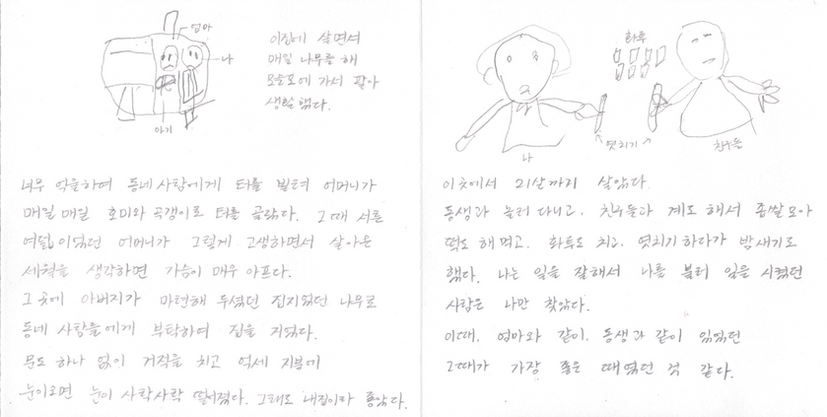 엄마
나
아기
이집에 살면서
매일 나무를 해
모슬포에 가서 팔아
생활 했다.
너무 억울하여 동네사람에게 터를 빌려 어머니가
매일매일 호미와 곡갱이로 터를 골랐다. 그때 서른
여덟이었던 어머니가 그렇게 고생하면서 살아온
세월을 생각하면 가슴이 매우 아프다.
그 곳에 아버지가 마련해 두셨던 집지었던 나무로
동네 사람들에게 부탁하여 집을 지었다.
문도 하나 없이 거적을 치고 억새 지붕에
눈이오면 눈이 사락사락 떨어졌다. 그래도 내집이라 좋았다.
화투
나
엿치기
친구들
이 곳에서 21살까지 살았다.
동생과 놀러 다니고, 친구들과 계도 해서 좁쌀 모아
떡도 해먹고, 화투도 치고, 엿치기 하다가 밤새기도
했다. 나는 일을 잘해서 나를 불러 일을 시켰던
사람은 나만 찾았다.
이때, 엄마와 같이, 동생과 같이 있었던
그때가 가장 좋은 때였던 것 같다.